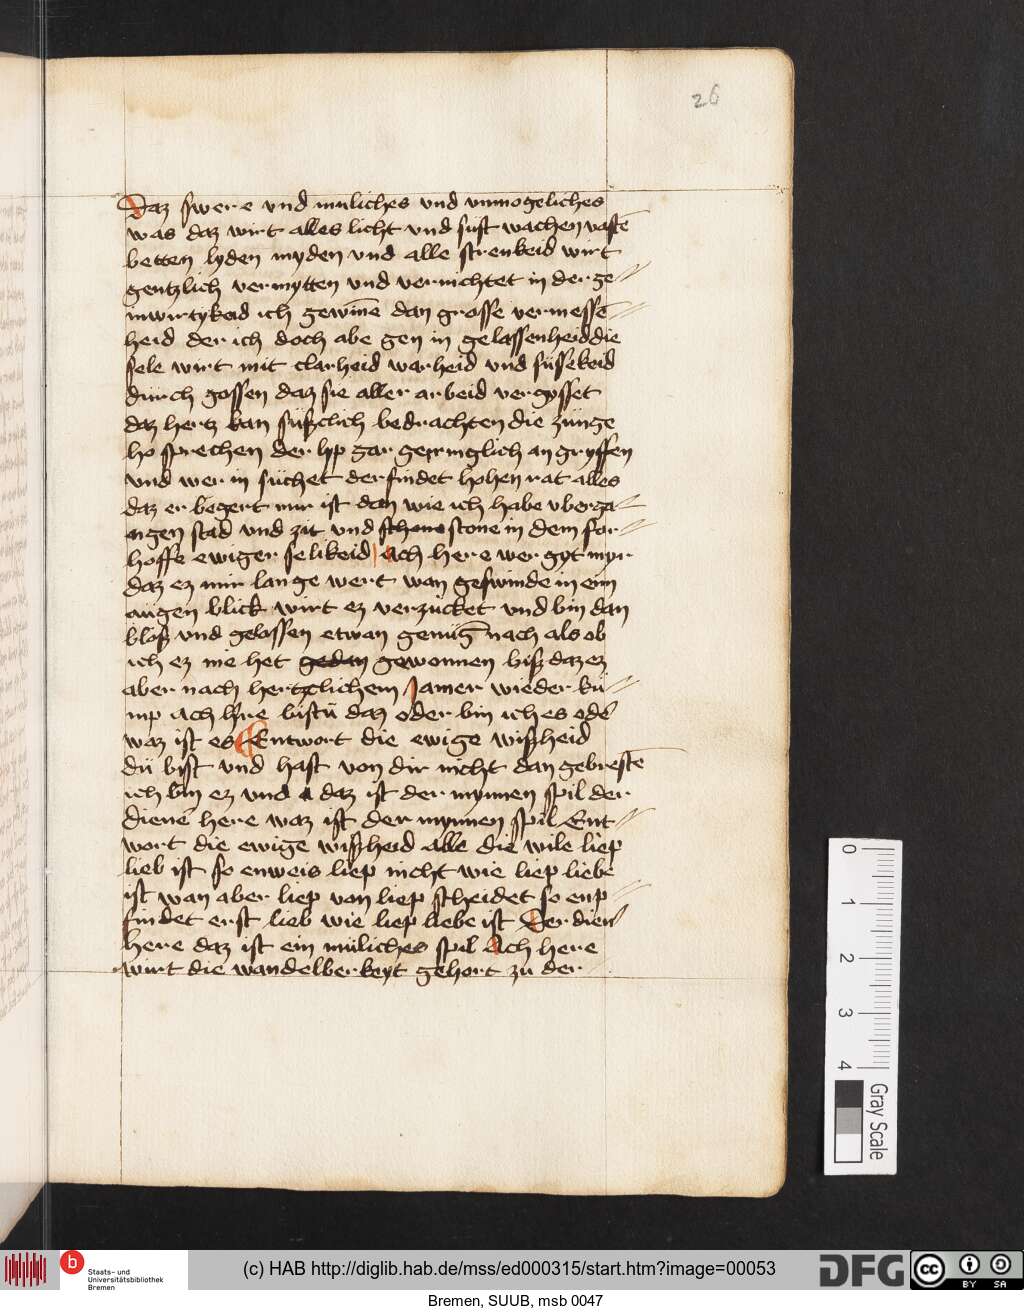 26
Daz swere vnd muliches vnd vnmogeliches
was daz wirt alles licht vnd sust wachen vastē
betten lyden myden vnd alle strenkeid wirt
gentzlich vermytten vnd vernichtet in der ge
inwirtykeid ich gewīne dan grosse vermessē
heid der ich doch abe gen in gelassenheid die
sele wirt mit clarheid warheid vnd süssekeid
durch gossen daz sie aller arbeid vergysset
daz hertz kan süszclich bedrachten die zunge
ho sprechen der lyp gar geringlich an gryffen
vnd wer in süchet der findet hohen rat alles
daz er begert mir ist dan wie ich habe vberga
ngen stad vnd zit vnd schone stone in dem for
hoffe ewiger selikeid ach here wer gyt myr
daz ez mir lange wert wan geswinde in eim
augen blick wirt ez verzucket vnd bin dan
blosz vnd gelossen etwan genüg nach als ob
ich ez nie het gedan gewonnen bisz daz ez
aber nach hertzclichem Jamer wieder ku
mp Ach hre bistu daz oder bin ich es odē
waz ist es Entwort die ewige wiszheid
dü byst vnd hast von dir nicht dan gebrestē
ich bin ez vnd daz ist der mynnen spil der
dienē here waz ist der mynnen spil Ent
wort die ewige wiszheid alle die wile liep
lieb ist so enweis liep nicht wie liep liebe
ist wan aber liep von liep scheidet so enp
findet erst lieb wie liep liebe ist Der dien
here daz ist ein müliches spil Ach here
wirt die wandelberkeyt gehort zu der
0
1
2
3
4
Gray Scale
b
Staats- und
Universitätsbibliothek
Bremen
(c) HAB http://diglib.hab.de/mss/ed000315/start.htm?image=00053
DFG
cc
BY SA
Bremen, SUUB, msb 0047